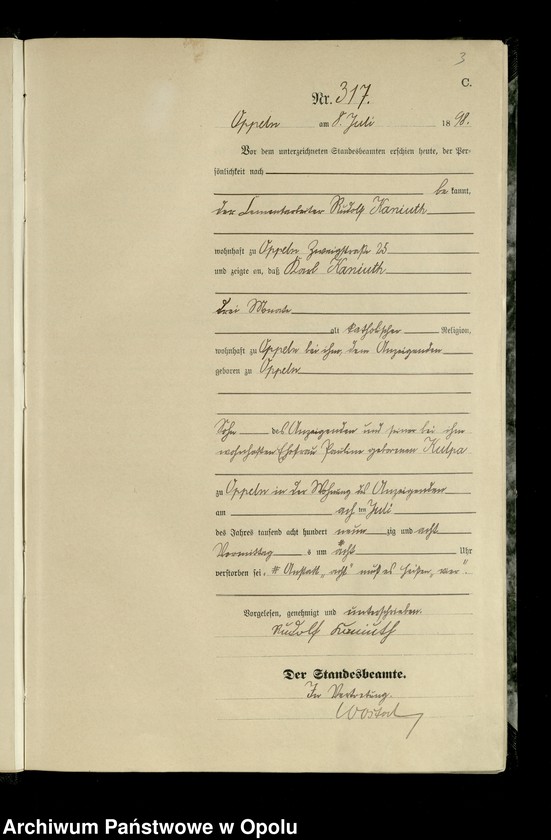 3
C.
Nr. 317.
Oppeln am 8. Juli 1898.
Vor dem unterzeichneten Standesbeamten erschien heute, der Per-
sönlichkeit nach
be kannt,
der Cementarbeiter Rudolf Kaniuth
wohnhaft zu Oppeln Zweigstraße 25
und zeigte an, daß Karl Kaniuth
drei Monate
alt katholischer Religion,
wohnhaft zu Oppeln bei ihm, dem Anzeigenden
geboren zu Oppeln
Sohn des Anzeigenden und seiner bei ihm
wohnhaften Ehefrau Pauline geborenen Kulpa
zu Oppeln in der Wohnung des Anzeigenden
am acht im Juli
des Jahres tausend acht hundert neun zig und acht
Vormittag s um * acht Uhr
verstorben sei. * Anstatt „acht" muß es heißen „vier".
Vorgelesen, genehmigt und unterschrieben.
Rudolf Kaniuth
Der Standesbeamte.
In Vertretung.
Archiwum Państwowe w Opolu